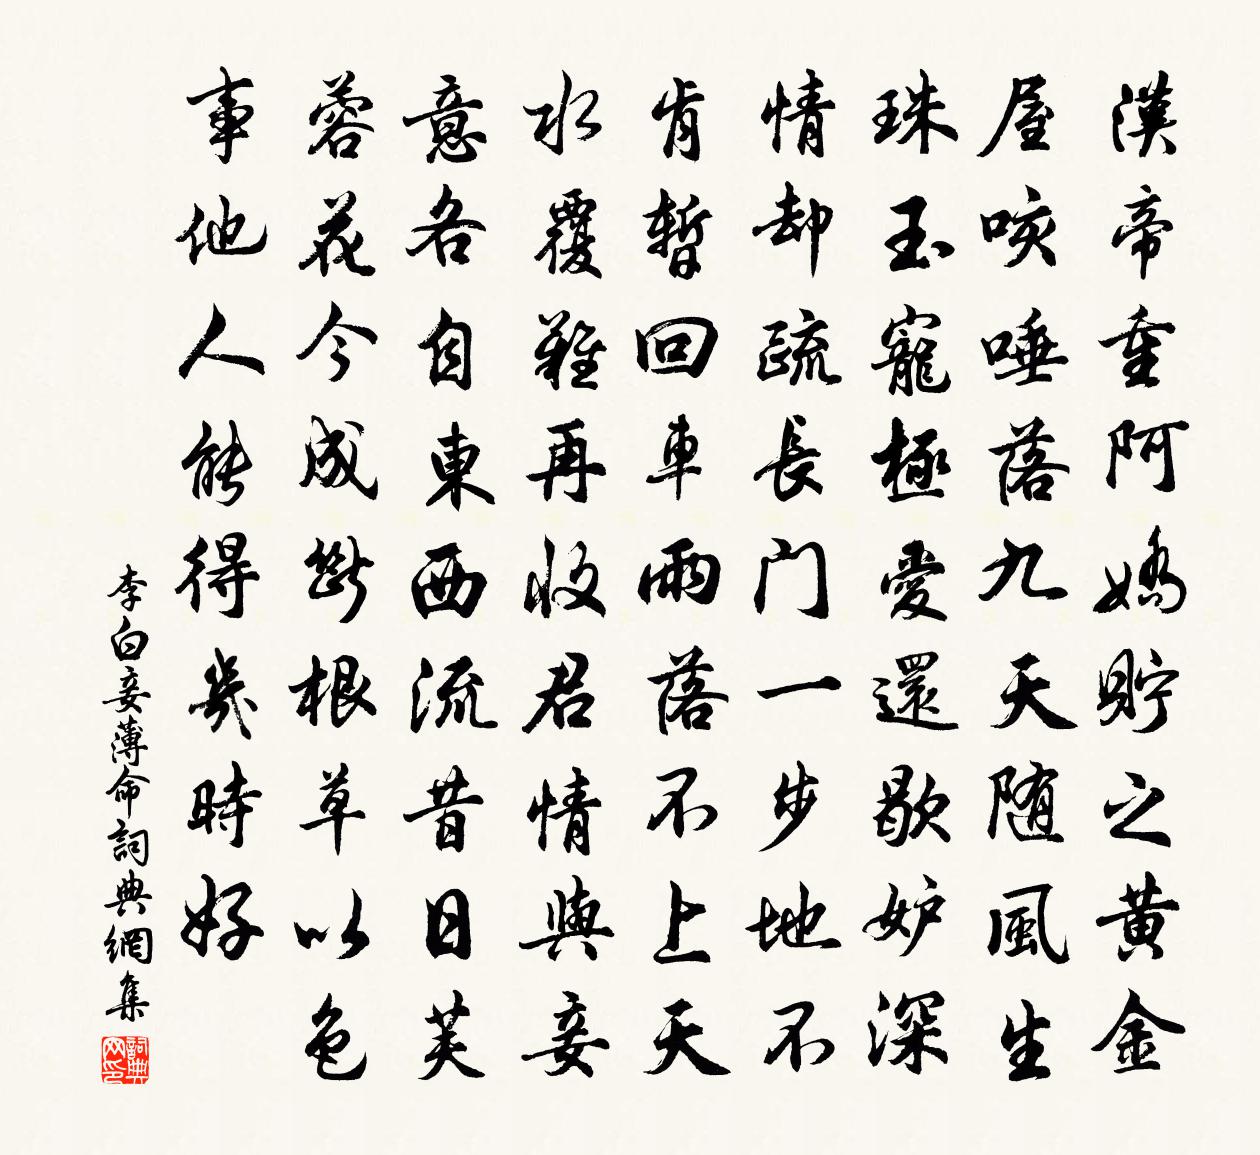 漢帝重阿嬌貯之黃金
屋咳唾落九天随風生
珠玉寵極愛還歇妒深
情却疏長门一步地不
肯暫回車雨落不上天
水覆難再收君情與妾
意各自東西流昔日芙
蓉花今成斷根草以色
事他人能得幾時好
李白妾薄命詞典網集
詞典网印